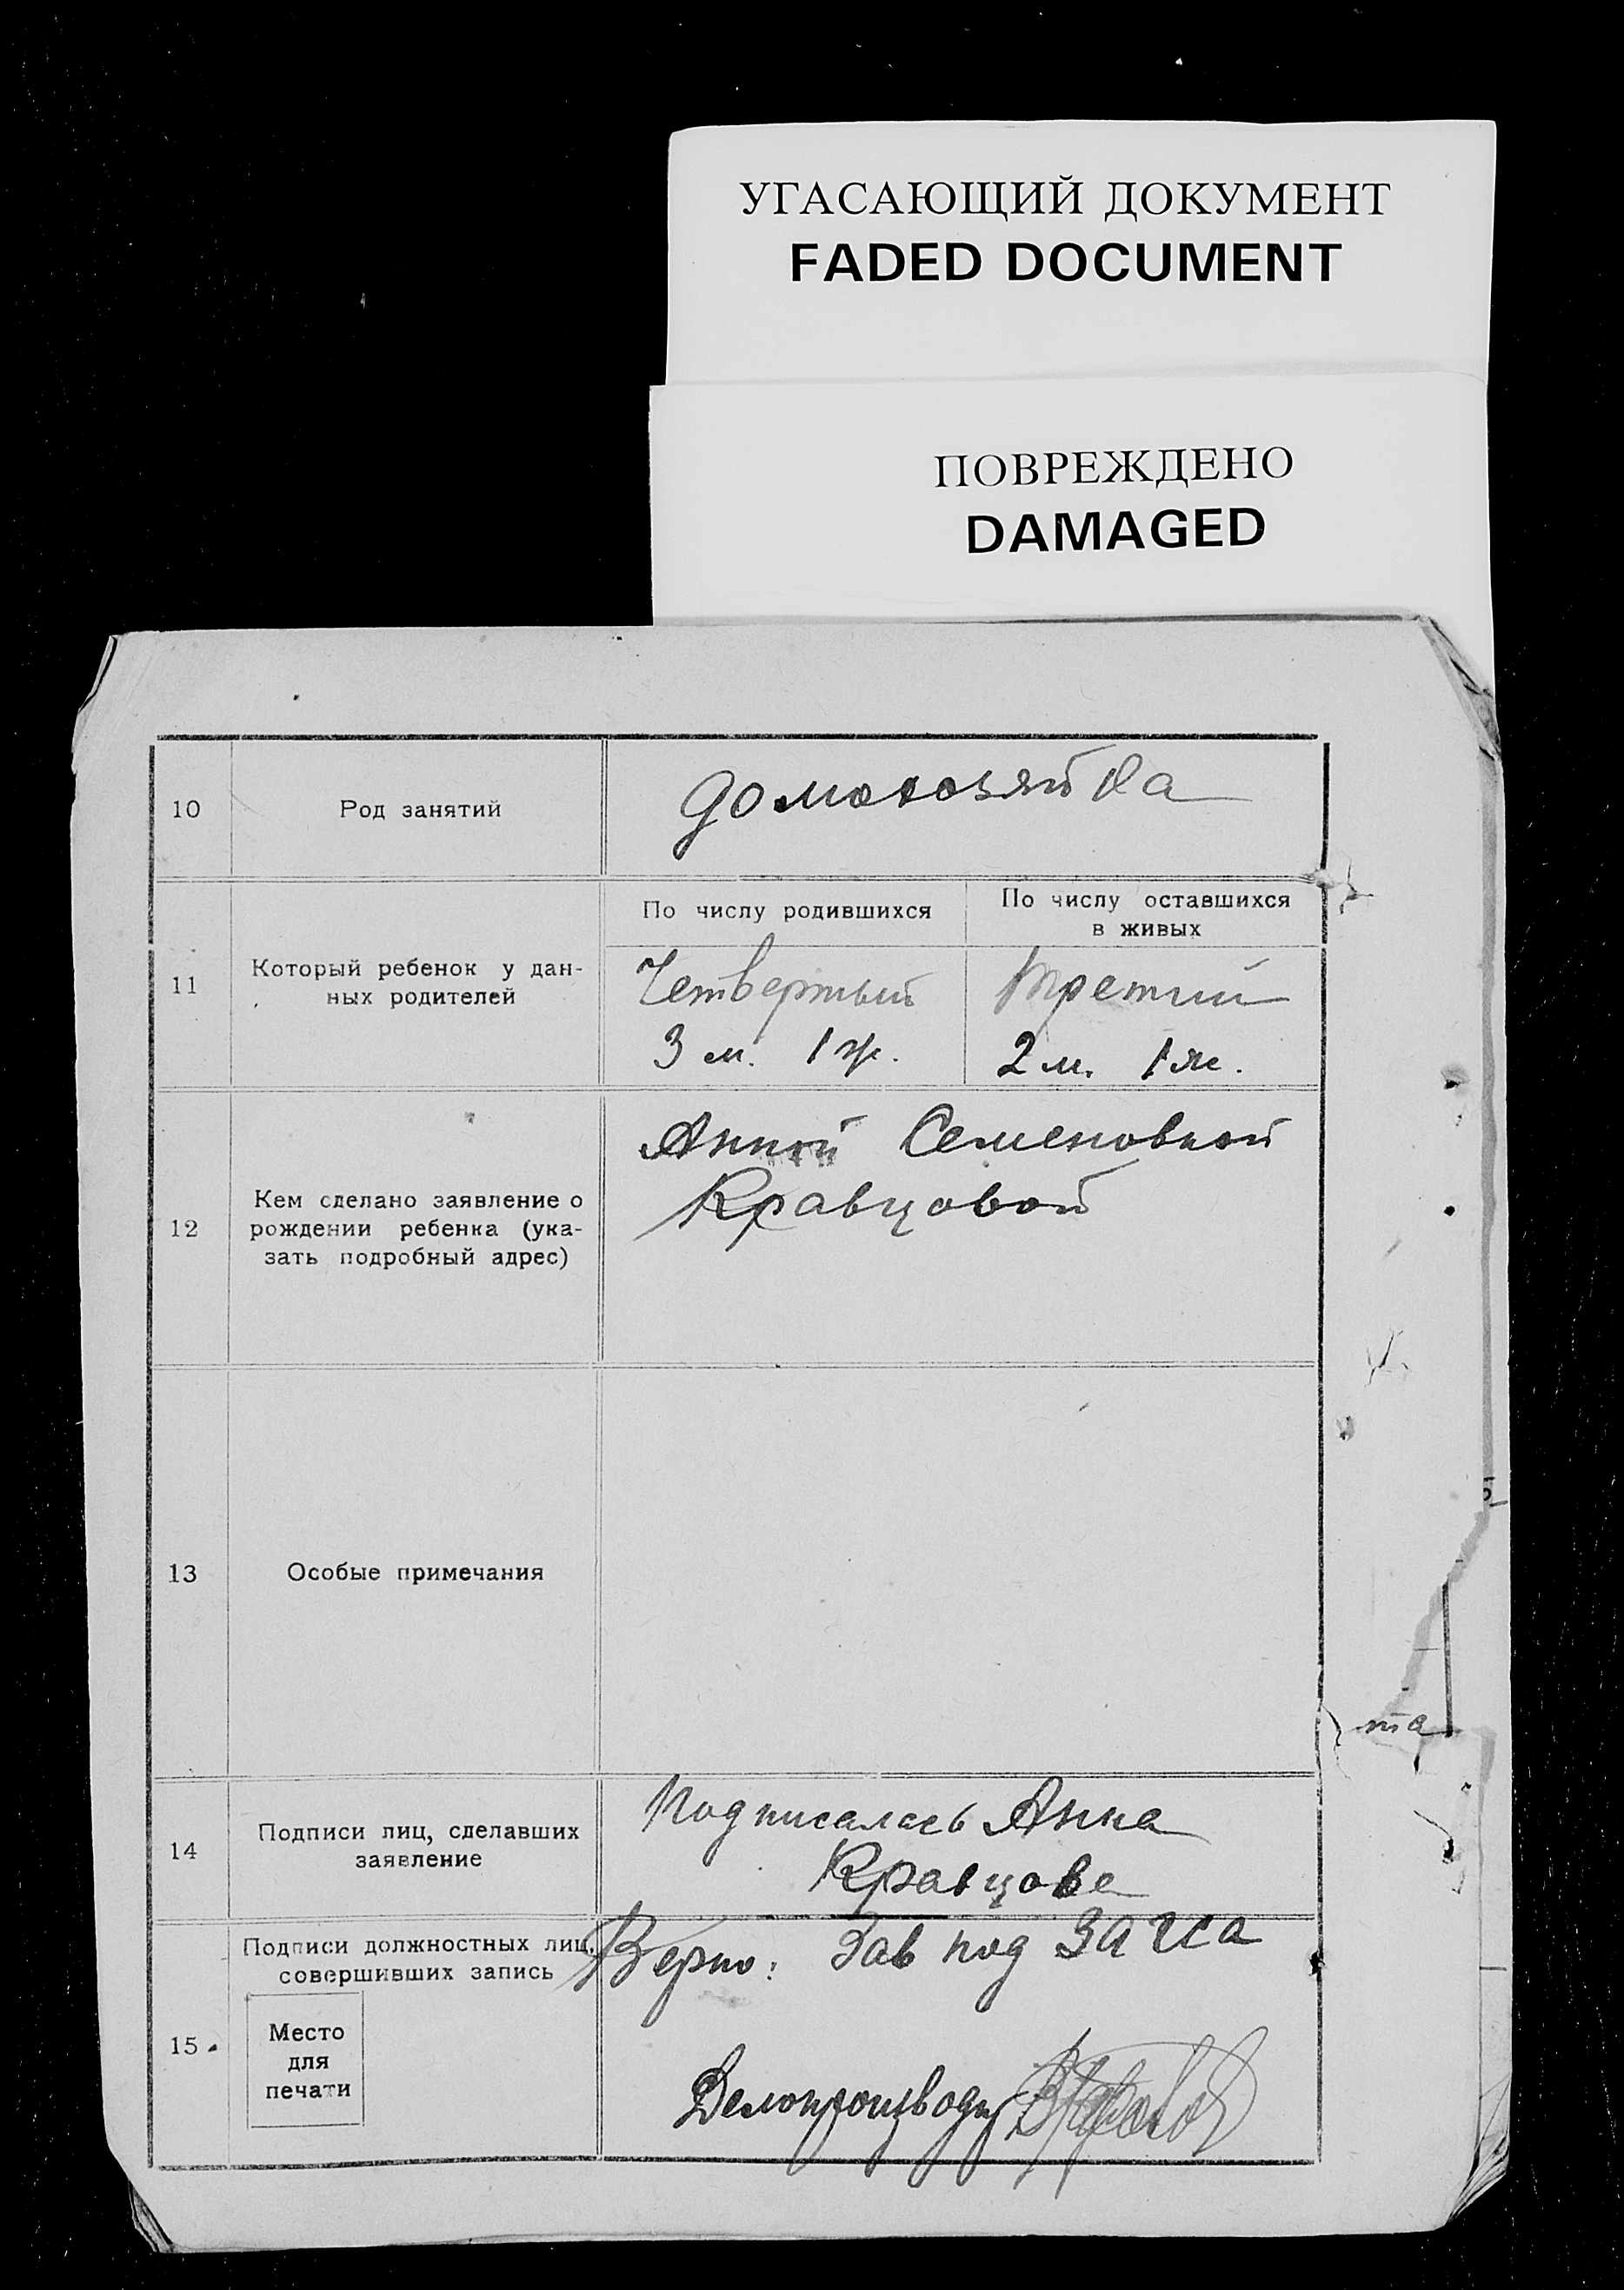 УГАСАЮЩИЙ ДОКУМЕНТ
FADED DOCUMENT
ПОВРЕЖДЕНО
DAMAGED
10
Род занятий
домохозяйка
11
Который ребенок у дан-
ных родителей
По числу родившихся
Четвертый
3 м. 1 ж.
По числу оставшихся
в живых
Третий
2 м. 1 ж.
12
Кем сделано заявление о
рождении ребенка (ука-
зать подробный адрес)
Анной Семеновной
Кравцовой
13
Особые примечания
та
14
Подписи лиц, сделавших
заявление
Подписалась Анна
Кравцова
15
Подписи должностных лиц,
совершивших запись
Место
для
печати
Верно: Зав под ЗАГСа
Делопроизводи